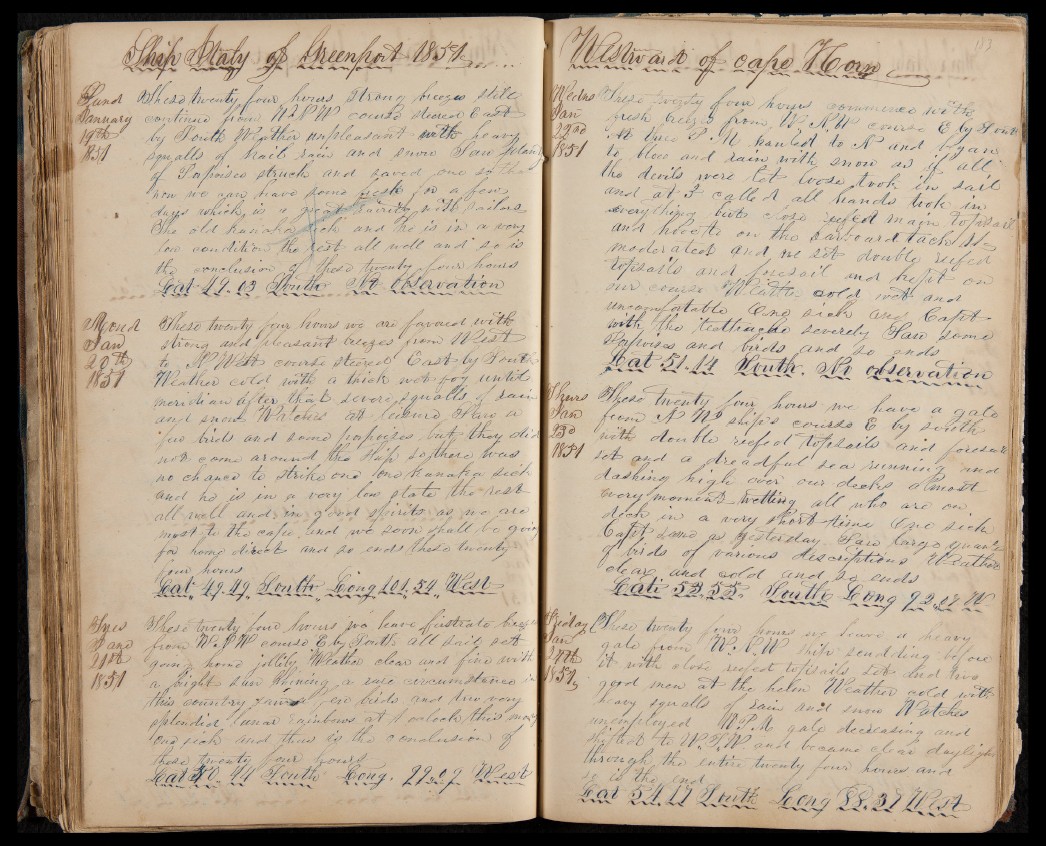 Ship Italy of Greenport 1851
Sund
January
19th
1851
These twenty four hours strong breezes still
continue from WNW course steered East
by South Weather unpleasant with heavy
squalls of hail rain and snow Saw plenty
of Porpoises struck and saved one so that
now we can have some fresh for a few
days which is a great rarity with sailors
The old kanaka sick and he is in a very
low condition the rest all well and so is
the conclusion of these twenty four hours
Lat 49.03 South No observation
Mond
Jan
20th
1851
These twenty four hours we are favoured with
strong and pleasant breezes from West
to N West course steered East by South
Weather cold with a thick wet fog until
meridian after that severe squalls of rain
and snow Watches Saw a
few birds and some porpoises but they did
not come around the Ship so there was
no chance to strike one One kanaka sick
and he is in a very low state the rest
all well and in good spirits as we are
most to the cape and we soon shall be going
for home direct and so ends these twenty
four hours
Lat 49.49 South Long 101.54 West
Tues
Jan
21st
1851
These twenty four hours we have firstrate breezes
from W.N.W course E by South all sail set
going home jollily Weather clear and fine with
a bright sun shining a rare circumstance in
this country Saw a few birds and two very
splendid lunar rainbows at 1 oclock this morn
One sick and thus is the conclusion of
these twenty four hours
Lat 50.44 South Long. 99.09 West
Westward of cape Horn
Wednes
Jan
22nd
1851
These twenty four hours commence with
fresh breezes from W.N.W course E by South
At three P.M hauled to N and began
to blow and rain with snow as if all
the devils were let loose took in sail
and at 3 called all hands took in
everything but close reefed main topsail
and hove to on the larboard tack
moderated and we set double reefed
topsails and foresail and kept on
our course Weather cold wet and
uncomfortable One sick and Capt
with the teethache severely Saw some
Porpoises and birds and so ends
Lat 51.14 South. No observation
Thurs
Jan
23d
1851
These twenty four hours we have a gale
from N W ship's course E by south
with double reefed topsails and foresail
set and a dreadful sea running and
dashing high over our decks almost
every moment wetting all who are on
deck in a very short time One sick
Capt same as yesterday. Saw large quanty
of birds of various descriptions Weather
clear and cold and so ends
Lati 52.55 South Long 92.09 W
Friday
Jan
24th
1851
These twenty four hours we have a heavy
gale from W.N.W ship scudding before
it with close reefed topsails set and two
good men at the helm Weather cold with
heavy squalls of rain and snow Watches
unemployed P.M gale decreasing and
shifted to W.S.W. and became clear daylight
through the entire twenty four hours and
so is the end
Lat 54.17 South Long 88.37 West